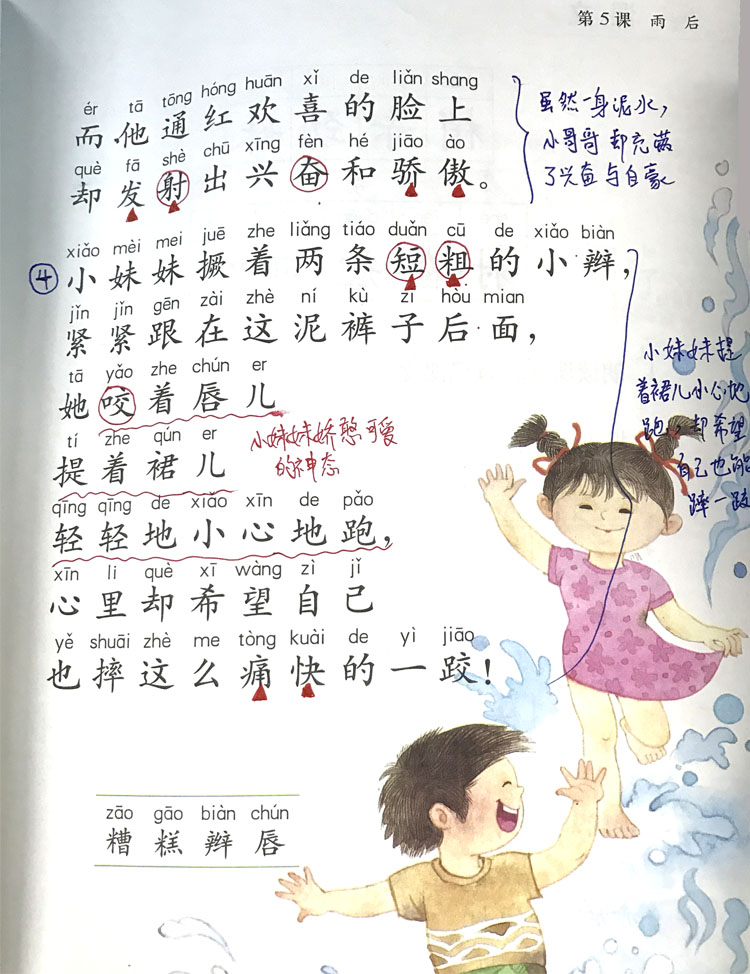 第5课 雨 后
ér tā tōng hóng huān xǐ de liǎn shang
而他通红欢喜的脸上
què fā shè chū xīng fèn hé jiāo ào
却发射出兴奋和骄傲。
虽然一身泥水，
小哥哥却充满
了兴奋与自豪
xiǎo mèi mei juē zhe liǎng tiáo duǎn cū de xiǎo biàn
④小妹妹撅着两条短粗的小辫，
jǐn jǐn gēn zài zhè ní kù zi hòu mian
紧紧跟在这泥裤子后面，
tā yǎo zhe chún er
她咬着唇儿
tí zhe qún er
提着裙儿
小妹妹娇憨可爱
的神态
qīng qīng de xiǎo xīn de pǎo
轻轻地小心地跑，
xīn li què xī wàng zì jǐ
心里却希望自己
yě shuāi zhè me tòng kuài de yì jiāo
也摔这么痛快的一跤！
小妹妹提
着裙儿小心地
跑，却希望
自己也能
蹿一跤
zāo gāo biàn chún
糟糕辫唇